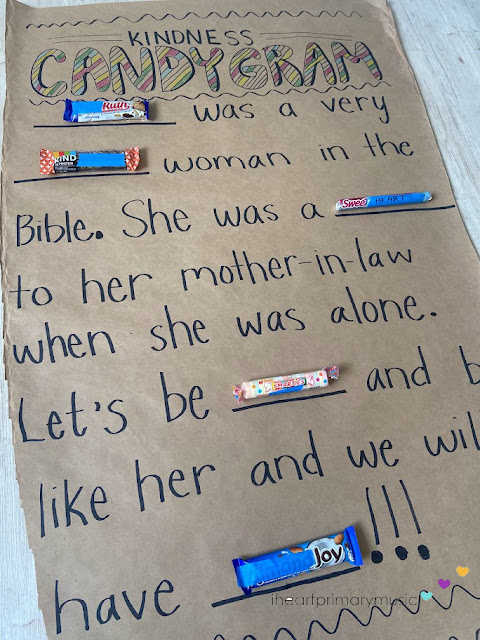 KINDNESS
CANDYGRAM
Ruth was a very
KIND woman in the
Bible. She was a Sweet HEART
to her mother-in-law
when she was alone.
Let's be SMARTIES and b
like her and we wil
have Joy !!!
iheartprimarymusic